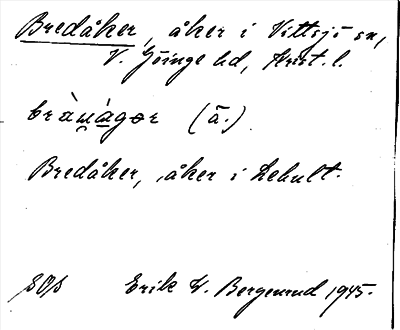 Bredåker, åker i Vittsjö sn,
V. Göinge hd, Krist. l.
brànågər (å.)
Bredåker, åker i Lehult.
Erik W. Bergenrud 1945.